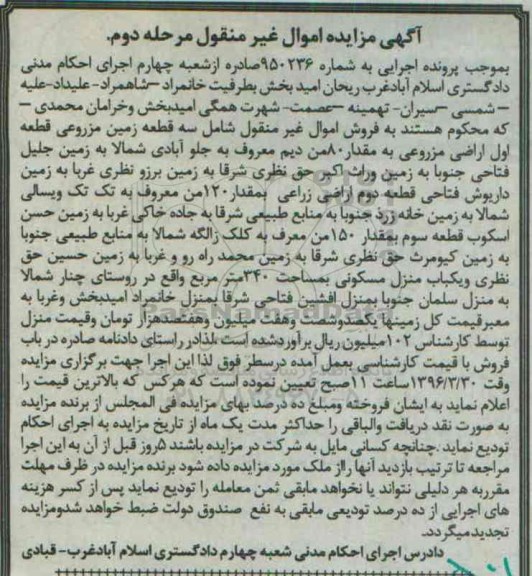 آگهی مزایده اموال غیر منقول مرحله دوم.
بموجب پرونده اجرایی به شماره ۹۵۰۲۳۶صادره ازشعبه چهارم اجرای احکام مدنی
دادگستری اسلام آبادغرب ریحان امید بخش بطرفیت خانمراد –شاهمراد- علیداد-علیه
– شمسی –سیران- تهمینه –عصمت- شهرت همگی امیدبخش وخرامان محمدی –
که محکوم هستند به فروش اموال غیر منقول شامل سه قطعه زمین مزروعی قطعه
اول اراضی مزروعی به مقدار۸۰من دیم معروف به جلو آبادی شمالا به زمین جلیل
فتاحی جنوبا به زمین وراث اکبر حق نظری شرقا به زمین برزو نظری غربا به زمین
داریوش فتاحی قطعه دوم اراضی زراعی بمقدار۱۲۰من معروف به تک تک ویسالی
شمالا به زمین خانه زرد جنوبا به منابع طبیعی شرقا به جاده خاکی غربا به زمین حسن
اسکوب قطعه سوم بمقدار ۱۵۰من معرف به کلک زالگه شمالا به منابع طبیعی جنوبا
به زمین کیومرث حق نظری شرقا به زمین محمد راه رو و غربا به زمین حسین حق
نظری ویکباب منزل مسکونی بمساحت ۳۴۰متر مربع واقع در روستای چنار شمالا
به منزل سلمان جنوبا بمنزل افشین فتاحی شرقا بمنزل خانمراد امیدبخش وغربا به
معبرقیمت کل زمینها یکصدوشصت وهفت میلیون وهفتصدهزار تومان وقیمت منزل
توسط کارشناس ۱۰۲میلیون ریال برآوردشده است لذادر راستای دادنامه صادره در باب
فروش با قیمت کارشناسی بعمل آمده درسطر فوق لذا این اجرا جهت برگزاری مزایده
وقت ۱۳۹۶/۳/۳۰ساعت ۱۱صبح تعیین نموده است که هرکس که بالاترین قیمت را
اعلام نماید به ایشان فروخته ومبلغ ده درصد بهای مزایده فی المجلس از برنده مزایده
به صورت نقد دریافت والباقی را حداکثر مدت یک ماه از تاریخ مزایده به اجرای احکام
تودیع نماید.چنانچه کسانی مایل به شرکت در مزایده باشند ۵روز قبل از آن به این اجرا
مراجعه تا ترتیب بازدید آنها رااز ملک مورد مزایده داده شود برنده مزایده در ظرف مهلت
مقرربه هر دلیلی نتواند یا نخواهد مابقی ثمن معامله را تودیع نماید پس از کسر هزینه
های اجرایی از ده درصد تودیعی مابقی به نفع صندوق دولت ضبط خواهد شدومزایده
تجدیدمیگردد.
دادرس اجرای احکام مدنی شعبه چهارم دادگستری اسلام آبادغرب- قبادی